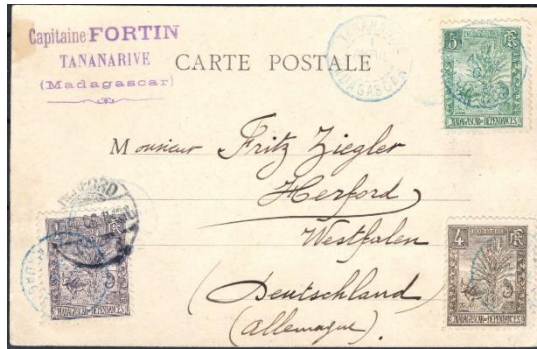 Capitaine FORTIN
TANANARIVE
(Madagascar)
CARTE POSTALE
MADAGASCAR
5
MADAGASCAR ET DEPENDANCES
Monsieur Fritz Ziegler
Herford
Westfalen
(Deutschland
(allemagne).
HERFORD
1
MADAGASCAR ET DEPENDANCES
4
MADAGASCAR ET DEPENDANCES